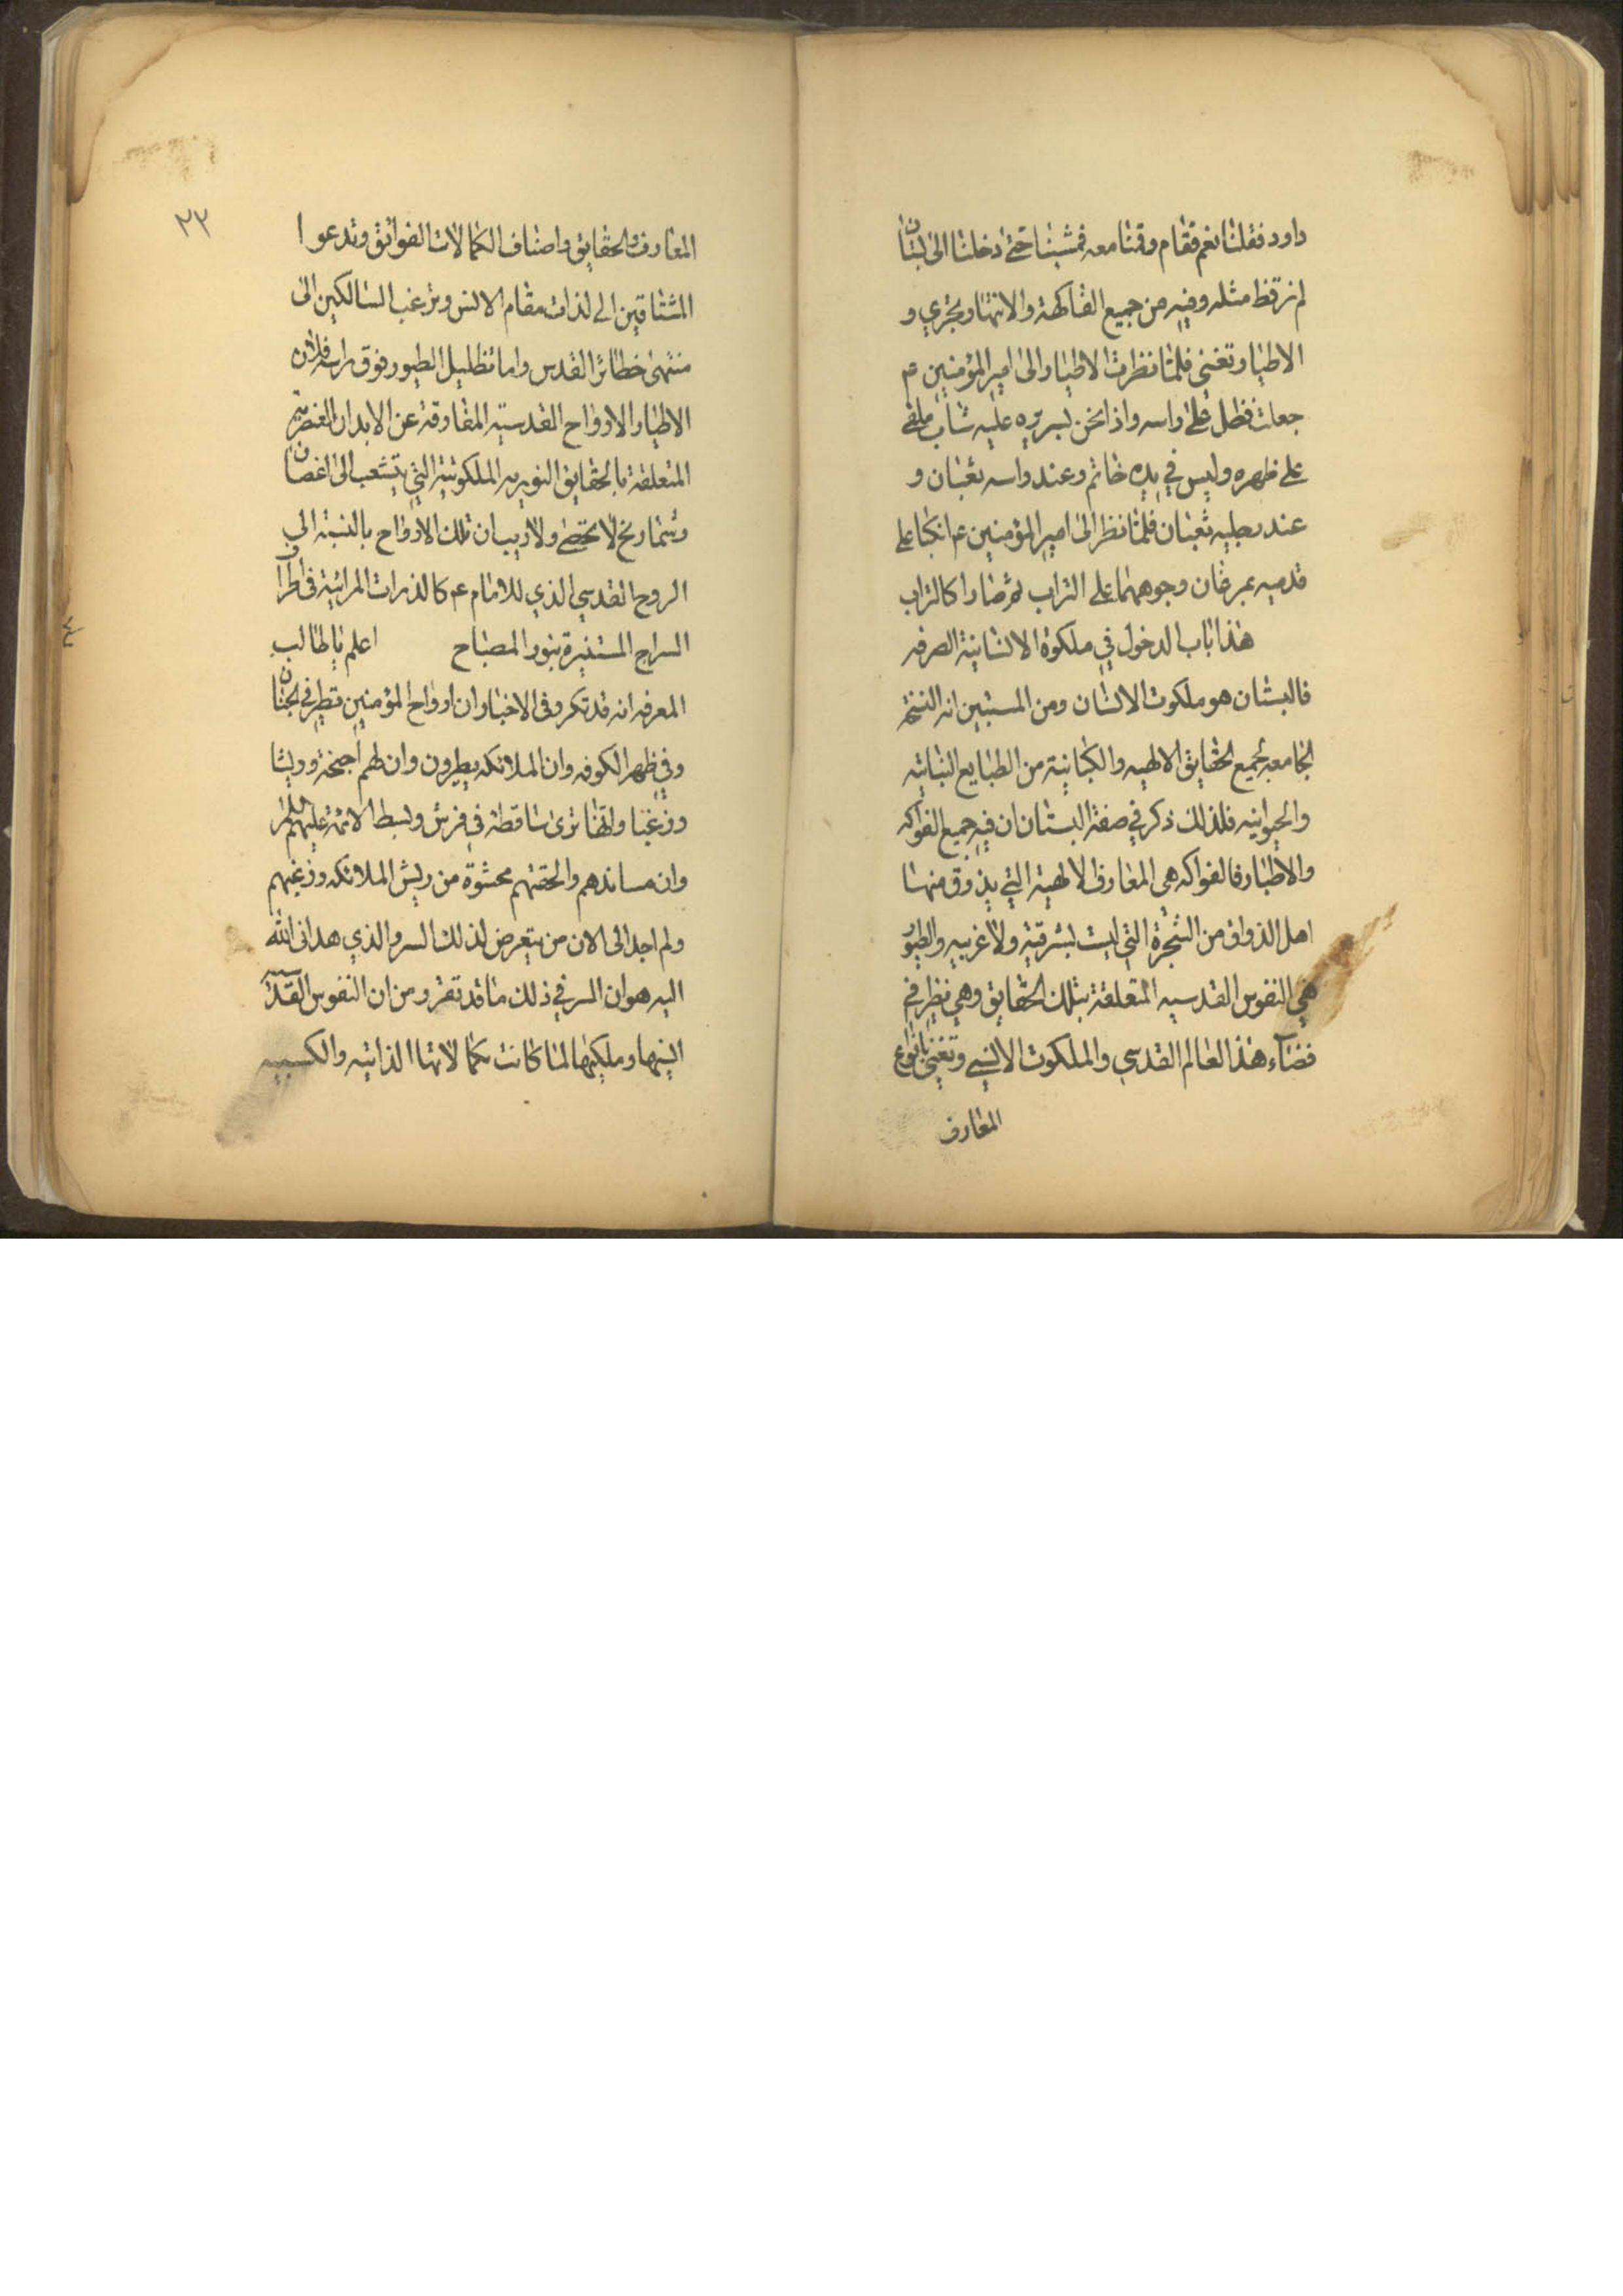 داود فقلنا نعم فقام وقمنا معه فمشينا حتى دخلنا الى بستان
لم نر قط مثله وفيه من جميع الفاكهة والانهار يجري و
الاطيار تغنى فلما نظرت الاطيار الى امير المؤمنين ع
جعلت تظل على راسه واذا نحن بسرير عليه شاب ملقى
على ظهره وليس في يده خاتم وعند راسه ثعبان و
عند رجليه ثعبان فلما نظر الى امير المؤمنين ع انكبا على
قدميه يمرغان وجوههما على التراب ثم صارا كالتراب
هذا باب الدخول في ملكوة الانسانية الصرفه
فالبستان هو ملكوت الانسان ومن المستبين انه النسخة
الجامعه لجميع الحقايق الالهيه والكيانية من الطبايع النباتيه
والحيوانيه فلذلك ذكر في صفة البستان ان فيه جميع الفواكه
والاطيار فالفواكه هي المعارف الالهية التي يذوق منها
اهل الذواق من الشجرة التي ليست بشرقية ولا غربيه والطيور
هي النفوس القدسيه المتعلقة بتلك الحقايق وهي تطير في
فضاء هذا العالم القدسي والملكوت الانسي وتغني بانواع
المعارف
٢٣
المعارف والحقايق واصناف الكمالات الفوائق وتدعوا
المشتاقين الى لذات مقام الانس وترغب السالكين الى
منتهى حظائر القدس واما تظليل الطيور فوق راسه فلان
الاطيار الارواح القدسيه المفارقة عن الابدان العنصريه
المتعلقة بالحقايق النوريه الملكوتية التي يتشعب الى اغصان
وشماريخ لا تحصى ولا ريب ان تلك الارواح بالنسبة الى
الروح القدسي الذي للامام ع كالذرات المرائية في اطراف
السراج المستنيرة بنور المصباح اعلم يا طالب
المعرفه انه قد تكرر في الاخبار ان ارواح المؤمنين تطير في الجنان
وفي ظهر الكوفه وان الملائكه يطيرون وان لهم اجنحة وريشا
وزغبا وانها ترى ساقطة في فرش وبسط الائمة عليهم السلام
وان مساندهم والحفتهم محشوة من ريش الملائكه وزغبهم
ولم اجد الى الان من يتعرض لذلك السر والذي هداني الله
اليه هو ان السر في ذلك ما قد تقرر من ان النفوس القدسية
اليتها وملكيتها لما كانت كمالاتها الذاتيه والكسبيه